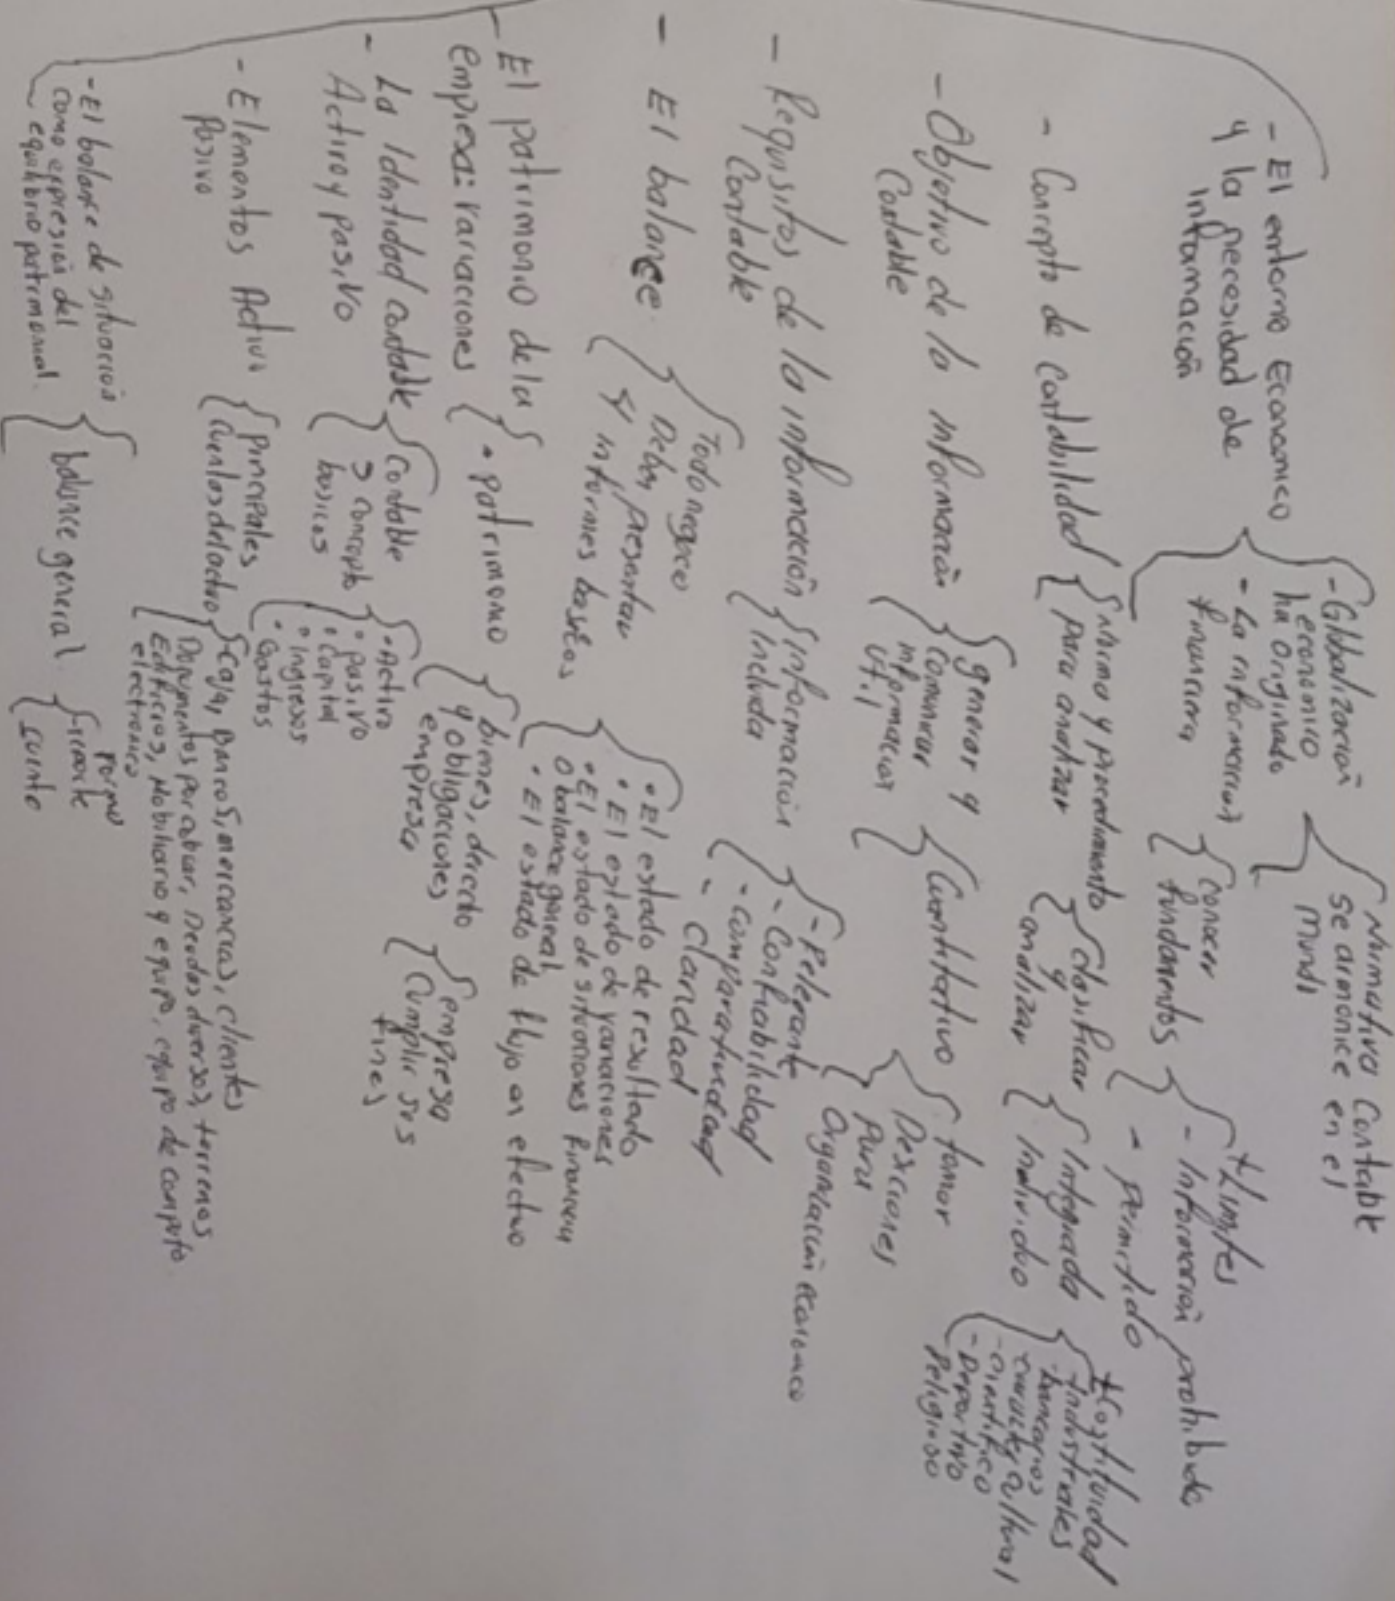 - El entorno Economico
y la necesidad de
Información
- Globalización
economico
ha originado
Normativa Contable
se armonice en el
mundo
- La información
financiera
conocer
fundamentos
- Limites
- Información prohibido
- permitido
- Concepto de contabilidad
y procedimiento
para analizar
clasificar
y
analizar
Integrada
Individuo
Industriales
bancarios
- cientifico
- Deportivo
Religioso
- Objetivo de la información
Contable
generar y
comunicar
información
util
Cuantitativo
tomar
Desiciones
para
Organización economico
- Requisitos de la información
Contable
Información
Incluida
- Relevante
- Confiabilidad
- Comparatividad
- claridad
- El balance
Todo negocio
Debe presentar
4 informes basicos
• El estado de resultado
• El estado de variaciones
• El estado de situaciones financiera
O balance general
• El estado de flujo en efectivo
- El patrimonio de la
empresa: variaciones
• patrimonio
bienes, derecho
y obligaciones
empresa
empresa
Cumplir sus
fines
- La Identidad contable
Activo y pasivo
Contable
concepto
basicos
• Activo
• pasivo
• Capital
• ingresos
• Gastos
- Elementos Activo
Pasivo
principales
cuentas del activo
Caja, bancos, mercancias, clientes
Documentos por cobrar, Deudas diversos, terrenos
Edificios, Mobiliario y equipo, equipo de computo
electronico
- El balance de situación
como expresión del
equilibrio patrimonial.
balance general
forma
cuenta